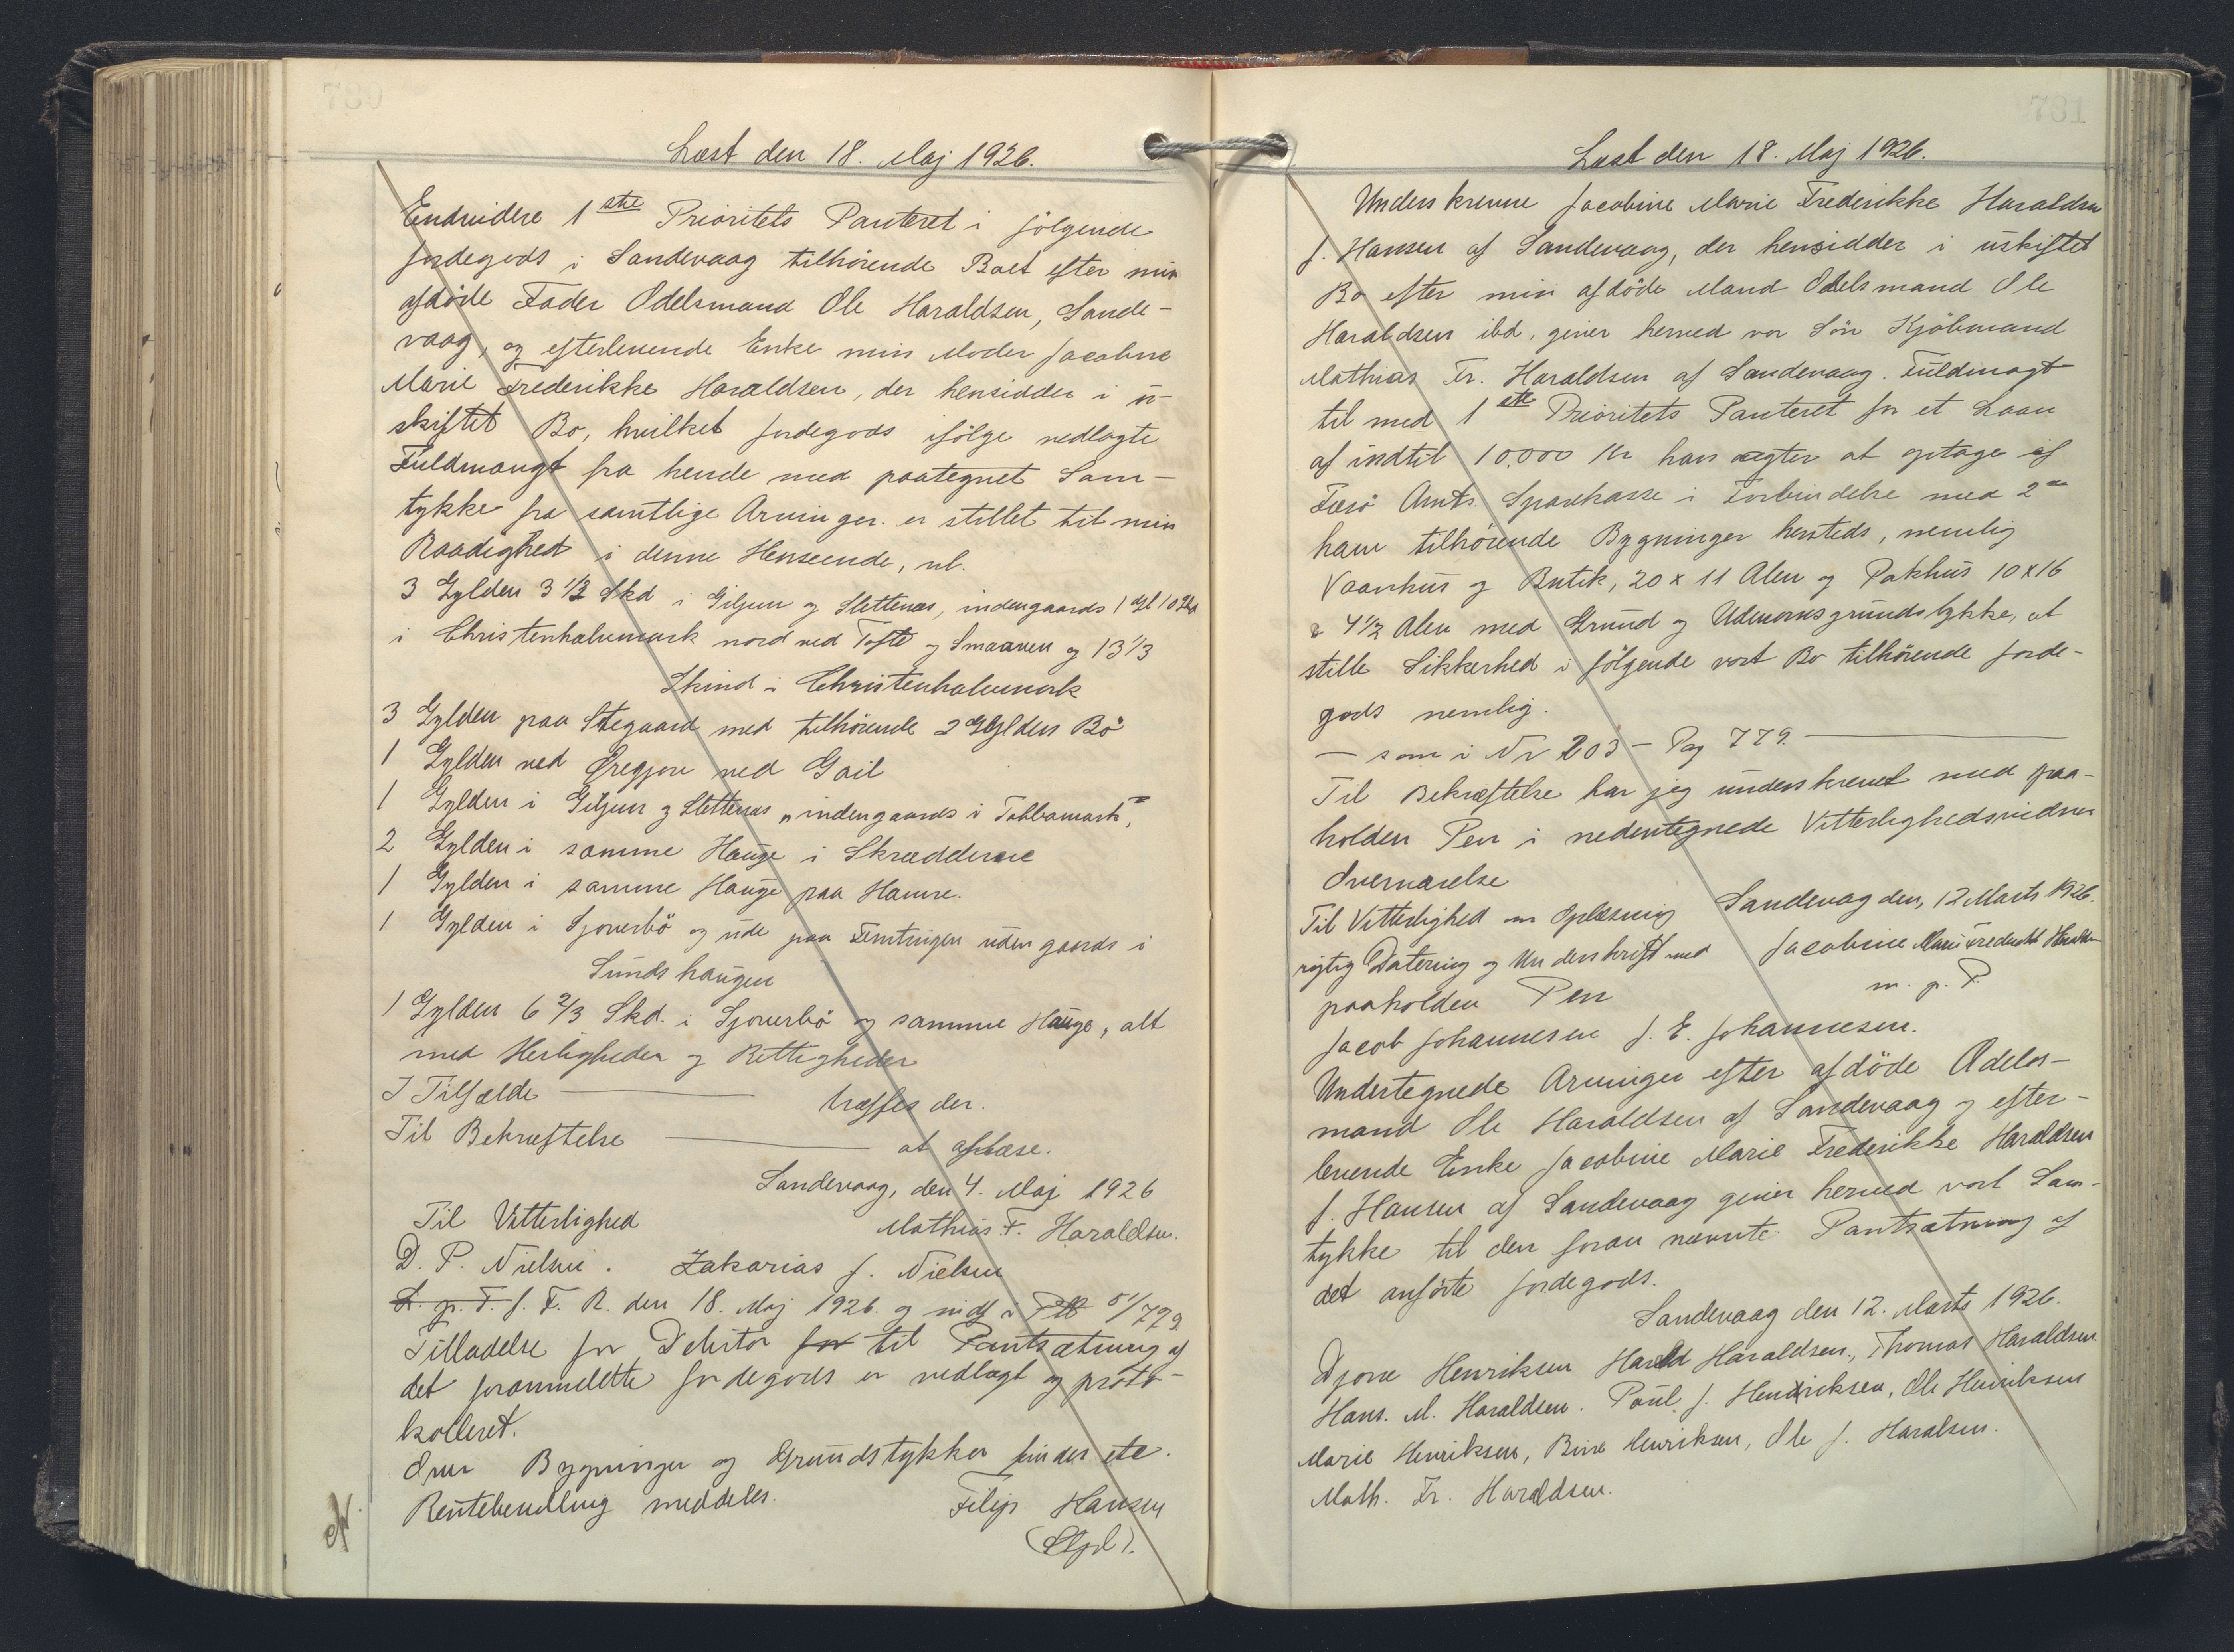 780
Læst den 18. Maj 1926.
Endvidere 1ste Prioritets Panteret i følgende
Jordegods i Sandevaag tilhörende Boet efter min
afdöde Fader Odelsmand Ole Haraldsen, Sande-
vaag, og efterlevende Enke min Moder Jacobine
Marie Frederikke Haraldsen, der hensidder i u-
skiftet Bo, hvilket Jordegods ifölge vedlagte
Fuldmangt fra hende med paategnet Sam-
tykke fra samtlige Arvinger er stillet til min
Raadighed i denne Henseende, nl.
3 Gylden 3 1/3 Skd i Giljum og Slettenæs, indengaards 1 Gl 10 Skd
i Christenhalvmark nord ved Tofte og Smaaven og 13 1/3
Skind i Christenhalvmark
3 Gylden paa Stegaard med tilhörende 2 Gylden Bö
1 Gylden ved Øregjore ved Gail
1 Gylden i Giljum og Slettenæs, indengaards i Tobbamark,
2 Gylden i samme Hauge i Skrædderne
1 Gylden i samme Hauge paa Hamre.
1 Gylden i Sjoverbö og ude paa Femtningen uden gaards i
Sundshaugen
1 Gylden 6 2/3 Skd. i Sjoverbö og samme Hauge, alt
med Herligheder og Rettigheder
I Tilfælde — træffes der.
Til Bekræftelse — at aflæse.
Sandevaag, den 4. Maj 1926
Til Vitterlighed Mathias F. Haraldsen.
D. P. Nielsen. Zakarias J. Nielsen
L. p. T. f. F. R. den 18. Maj 1926. og indf i Ptb 5/779
Tilladelse for Debitor for til Pantsætning af
det foranmeldte Jordegods er vedlagt og proto-
kolleret.
Over Bygninger og Grundstykker findes etc.
Rentebevilling meddeles. Filip Hansen
781
Læst den 18. Maj 1926.
Underskrevne Jacobine Marie Frederikke Haraldsen
f. Hansen af Sandevaag, der hensidder i uskiftet
Bo efter min afdöde Mand Odelsmand Ole
Haraldsen ibd, giver herved vor Sön Kjöbmand
Mathias Fr. Haraldsen af Sandevaag. Fuldmagt
til med 1ste Prioritets Panteret for et Laan
af indtil 10.000 Kr han agter at optage af
Færö Amts Sparekasse i Forbindelse med 2de
ham tilhörende Bygninger hersteds, nemlig
Vaanhus og Butik, 20 x 11 Alen og Pakhus 10 x 16
a 4 1/2 Alen med Grund og Udmarksgrundstykke, at
stille Sikkerhed i fölgende vort Bo tilhörende Jorde-
gods nemlig.
— som i Nr 203 — Pag 779. —
Til Bekræftelse har jeg underskrevet med paa-
holden Pen i nedentegnede Vitterlighedsvidners
Overværelse
Til Vitterlighed om Oplæsning Sandevag den, 12 Marts 1926.
rigtig Datering og Underskrift med Jacobine Marie Frederikke Haraldsen
paaholden Pen m. p. P.
Jacob Johannesen J. E. Johannesen.
Undertegnede Arvinger efter afdöde Odels-
mand Ole Haraldsen af Sandevaag og efter-
levende Enke Jacobine Marie Frederikke Haraldsen
f. Hansen af Sandevaag giver herved vort Sam-
tykke til den foran nævnte Pantsætning af
det anförte Jordegods.
Sandevaag den 12. Marts 1926.
Djone Henriksen Harald Haraldsen, Thomas Haraldsen.
Hans. M. Haraldsen. Poul. J. Henriksen, Ole Henriksen
Marie Henriksen, Bine Henriksen, Ole J. Haralsen.
Math. Fr. Haraldsen.